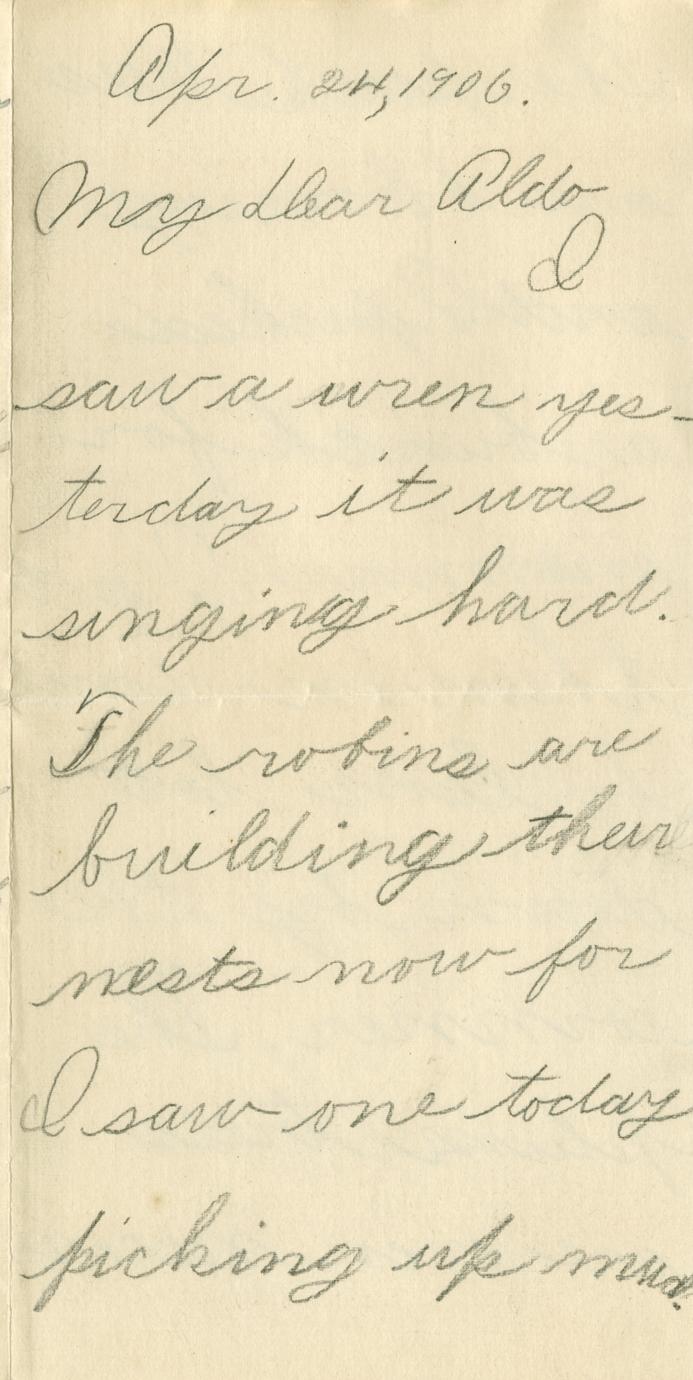 Apr. 24, 1906.
My Dear Aldo
I
saw a wren yes-
terday it was
singing hard.
The robins are
building their
nests now for
I saw one today
picking up mud.